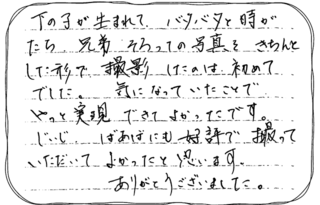 下の子が生まれて、バタバタと時が
たち、兄弟そろっての写真をきちんと
した形で撮影したのは初めて
でした。気になっていたことで
やっと実現できてよかったです。
じいじ、ばあばにも好評で撮って
いただいてよかったと思います。
ありがとうございました。